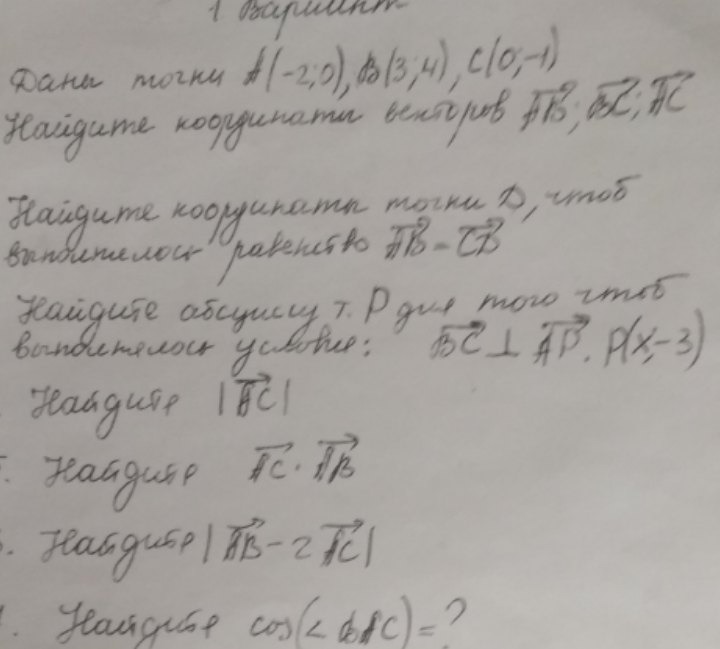 1 Вариант
Даны точки A(-2;0), B(3;4), C(0;-1)
Найдите координаты векторов AB; BC; AC
Найдите координаты точки D, чтоб
выполнялось равенство AB = CD
Найдите абсциссу т. P для того чтоб
выполнялось условие: BC ⊥ AP. P(x;-3)
. Найдите |AC|
. Найдите AC · AB
. Найдите |AB - 2AC|
. Найдите cos(∠BAC) = ?